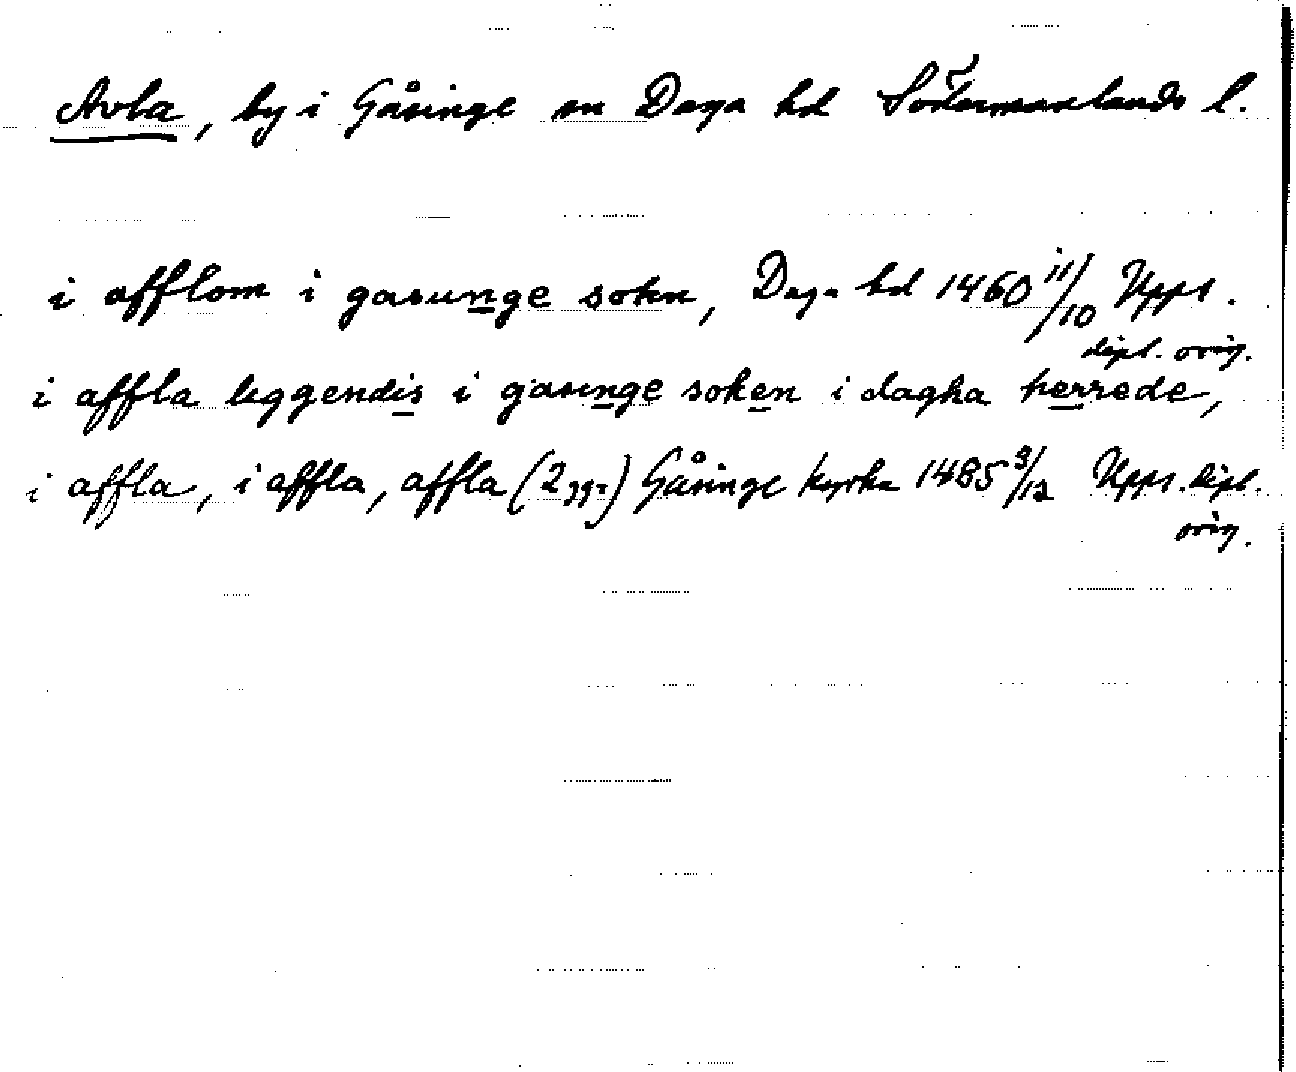 Avla, by i Gåsinge sn Daga hd Södermanlands l.
i afflom i gasunge sokn, Daga hd 1460 11/10 Upps.
dipl. orig.
i affla leggendis i gasinge soken i dagha herrede,
i affla, i affla, affla (2 ggr) Gåsinge kyrka 1485 3/12 Upps. dipl.
orig.